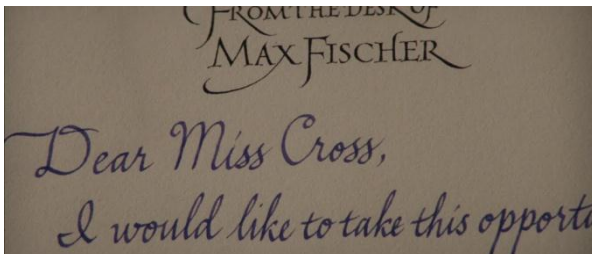 FROM THE DESK OF
MAX FISCHER
Dear Miss Cross,
I would like to take this opportu